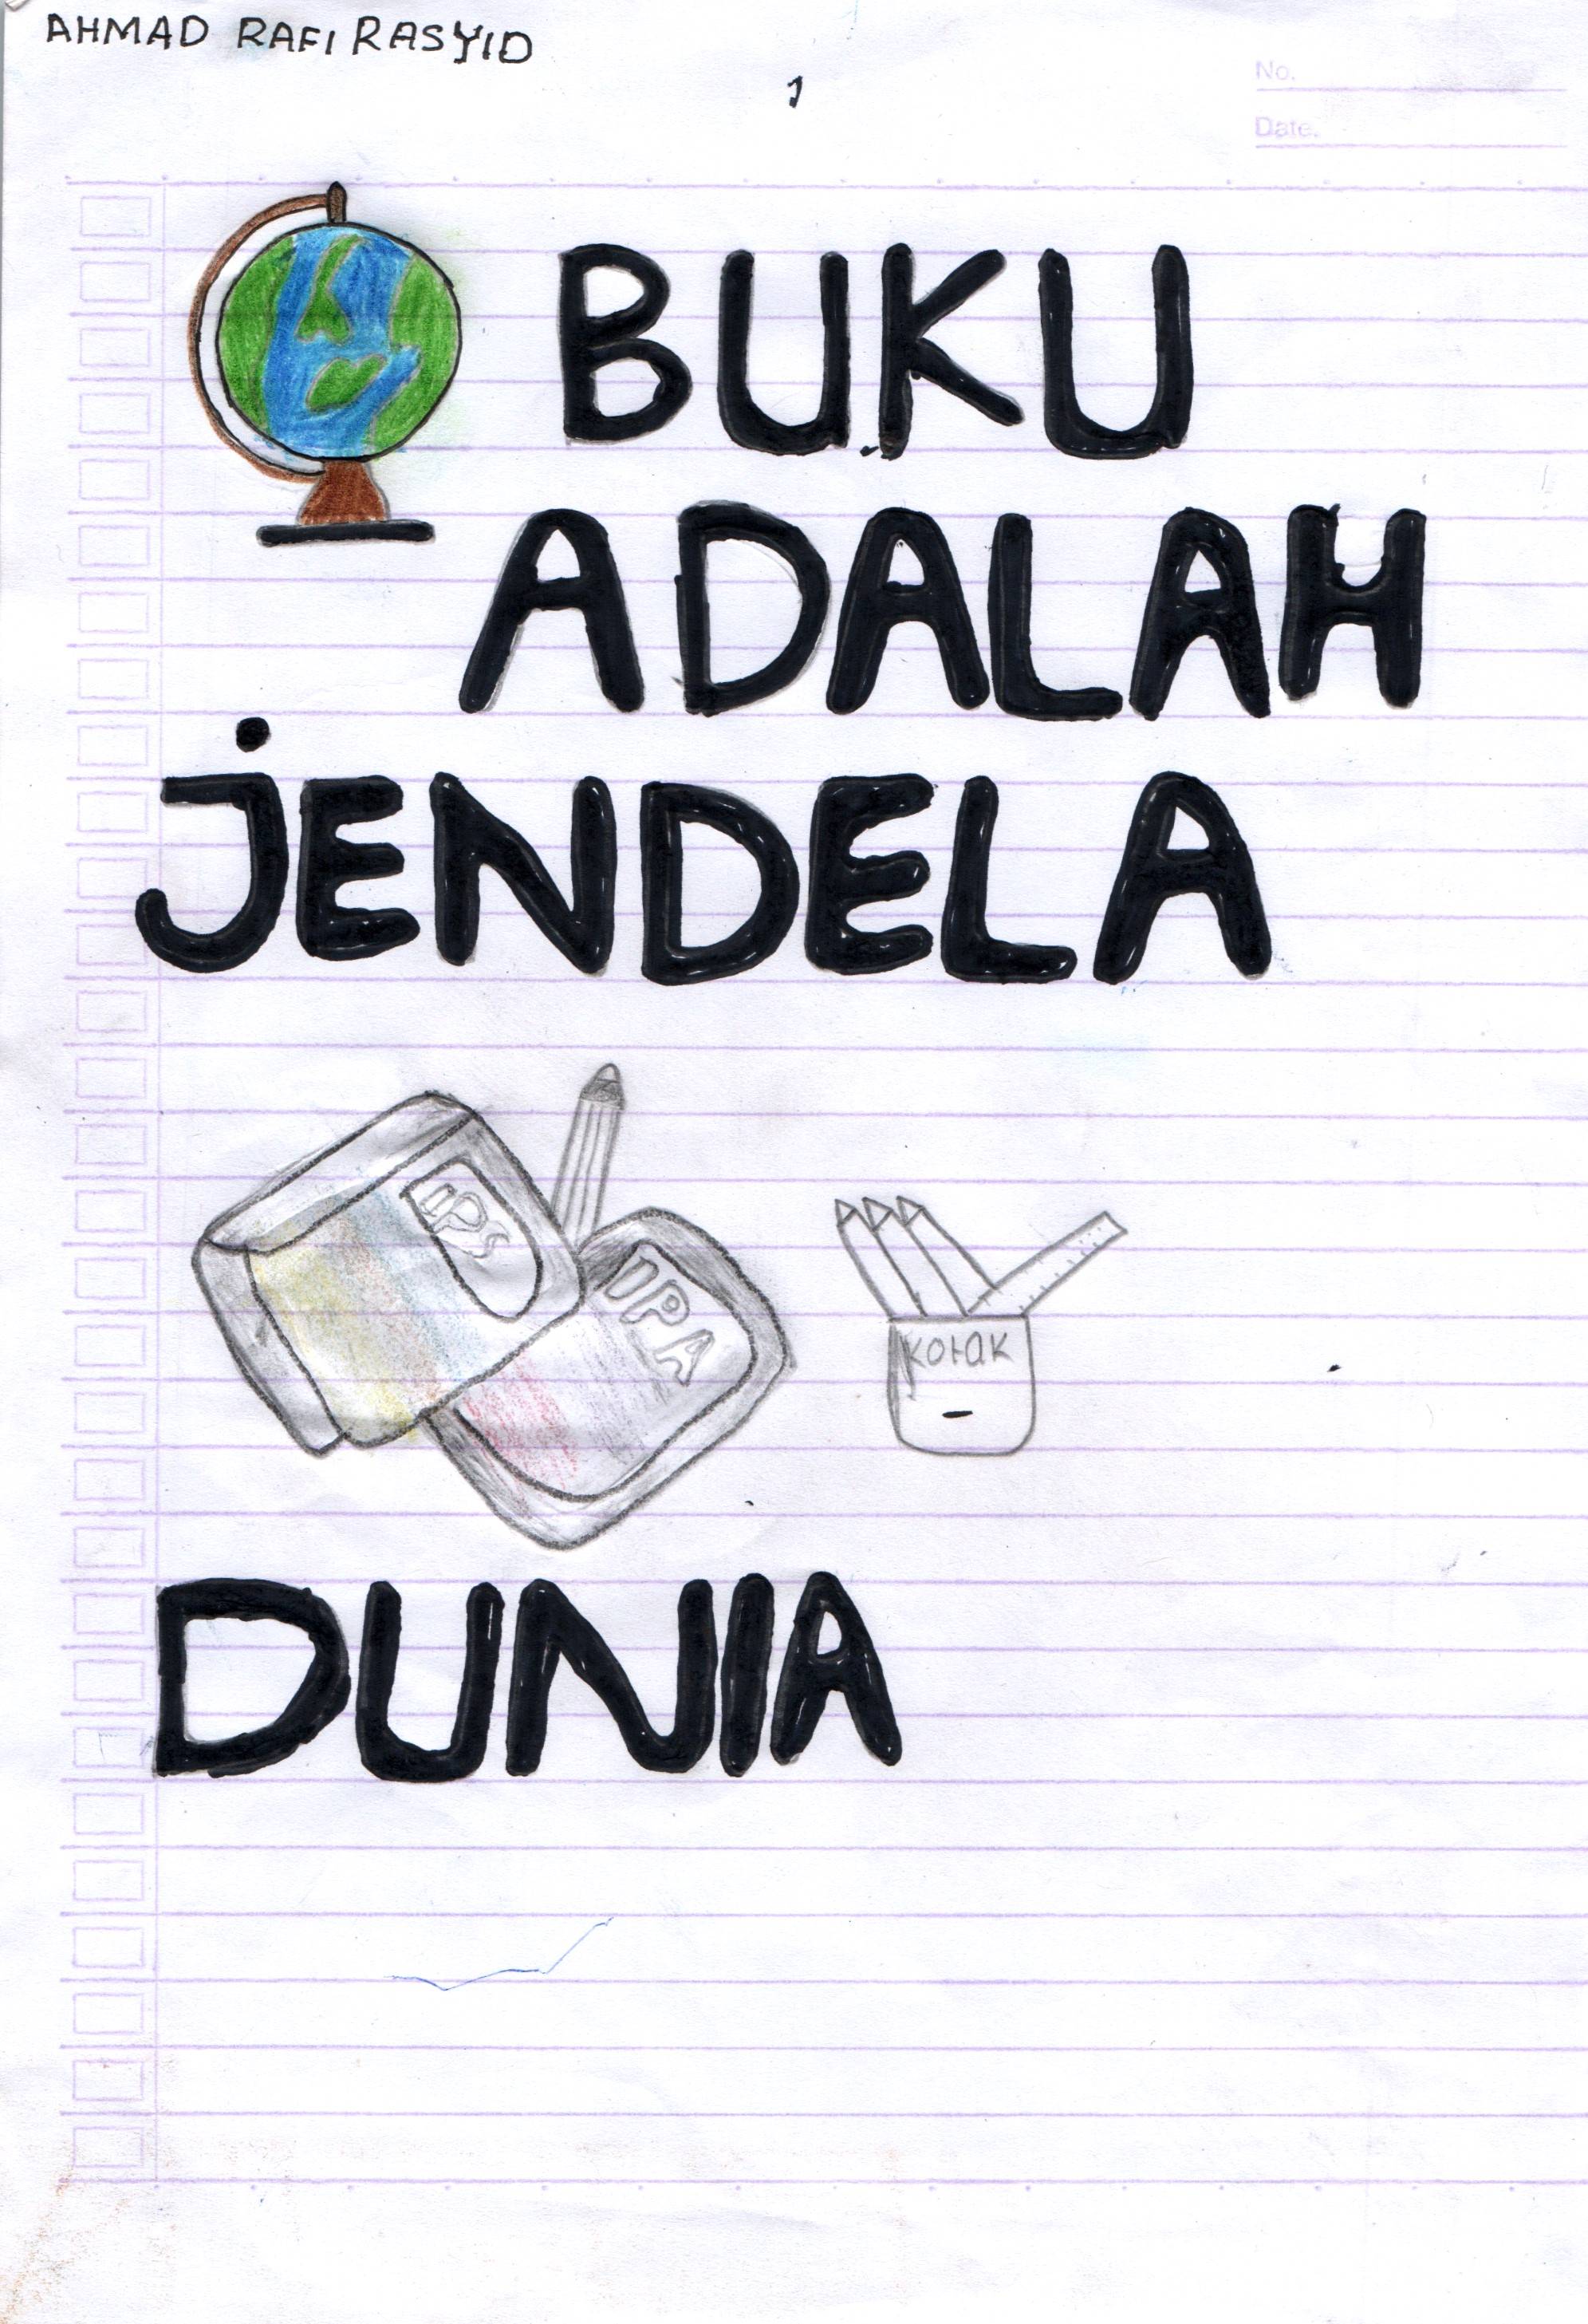 AHMAD RAFI RASYID
1
No.
Date.
BUKU
ADALAH
jENDELA
IPS
IPA
KOtAK
DUNIA